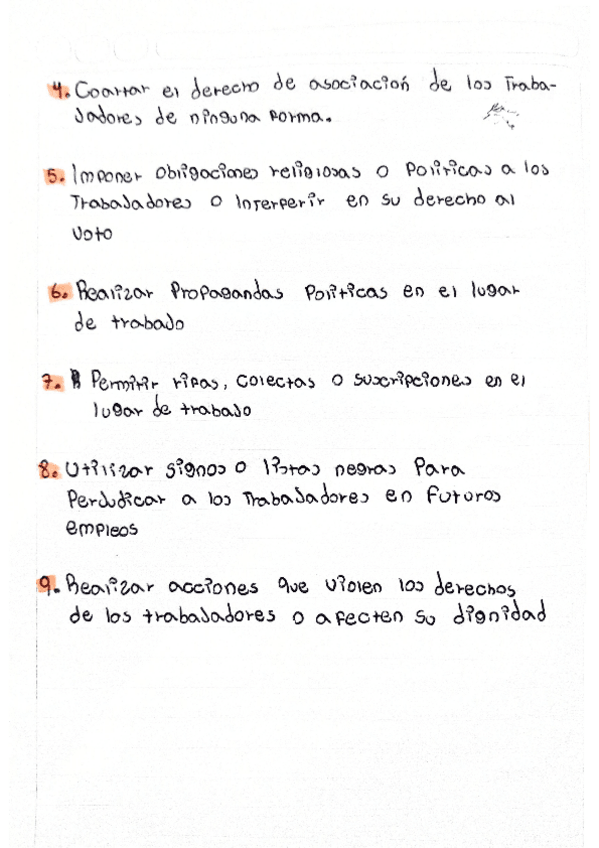 4. Coartar el derecho de asociación de los Traba-
Jadores de ninguna forma.
5. Imponer obligaciones religiosas o Politicas a los
Trabajadores o Interperir en su derecho al
voto
6. Realizar Propagandas Politicas en el lugar
de trabajo
7. Permitir rifas, colectas o suscripciones en el
lugar de trabajo
8. Utilizar signos o listas negras Para
Perjudicar a los Trabajadores en Futuros
empleos
9. Realizar acciones que violen los derechos
de los trabajadores o afecten su dignidad